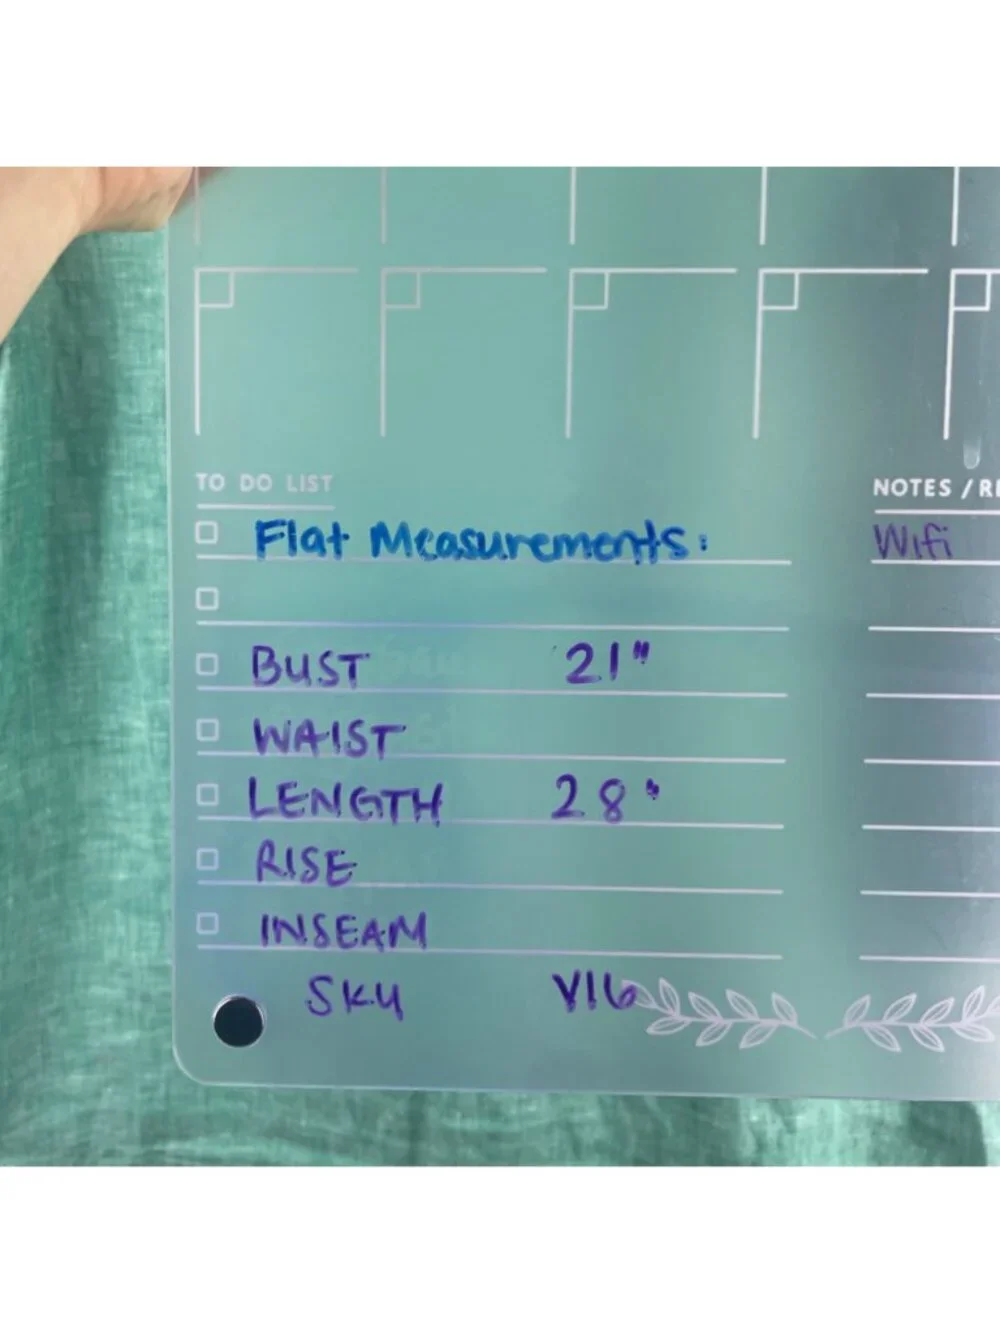 TO DO LIST
Flat Measurements:
BUST 21"
WAIST
LENGTH 28"
RISE
INSEAM
SKU V16
NOTES / RE
Wifi